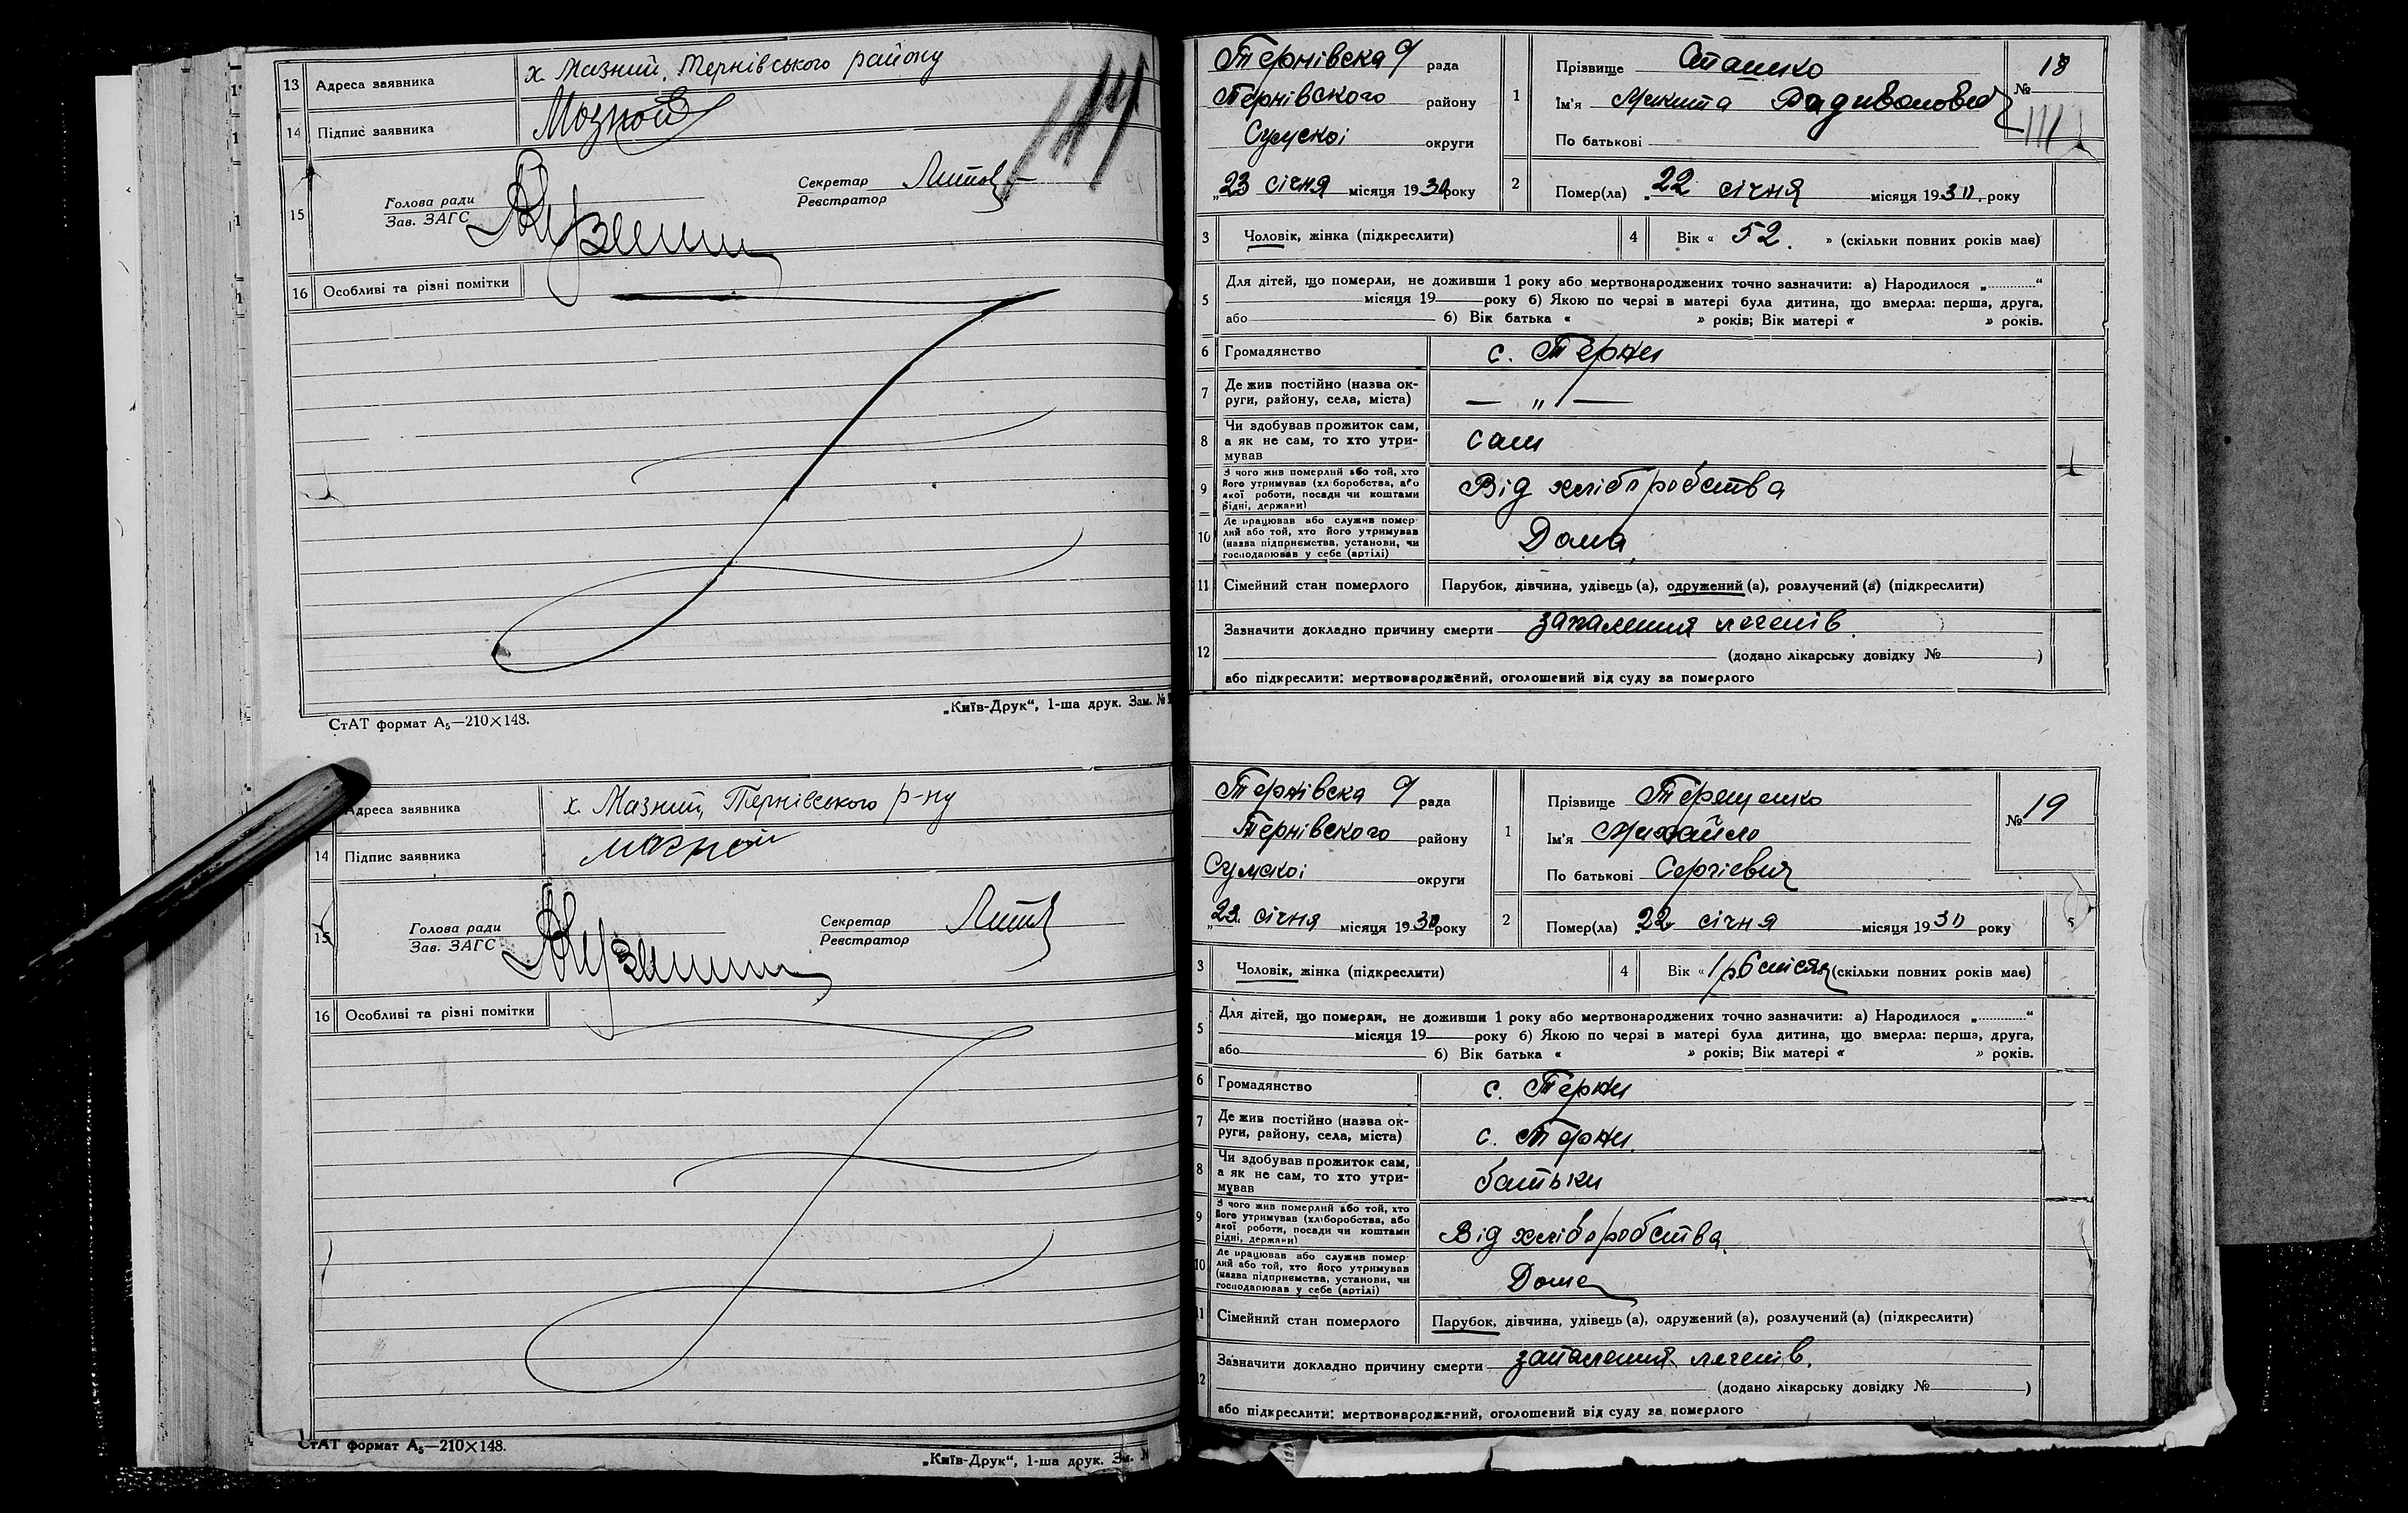 13 Адреса заявника х. Мазний, Тернівського району
14 Підпис заявника Мозной
15 Голова ради
Зав. ЗАГС
Секретар
Реєстратор
16 Особливі та різні помітки
СтАТ формат А₅—210×148.
„Київ-Друк“, 1-ша друк. Зам. №
Адреса заявника х. Мазний, Тернівського р-ну
14 Підпис заявника мозной
15 Голова ради
Зав. ЗАГС
Секретар
Реєстратор
16 Особливі та різні помітки
СтАТ формат А₅—210×148.
„Київ-Друк“, 1-ша друк. Зам. №
Тернівска рада
Тернівского району
Сумскоі округи
„23 січня місяця 1930 року
1 Прізвище
Ім'я Микита Радивонович
По батькові
№ 18
2 Помер(ла) „22 січня місяця 1930. року
3 Чоловік, жінка (підкреслити)
4 Вік « 52. » (скільки повних років має)
5 Для дітей, що померли, не доживши 1 року або мертвонароджених точно зазначити: а) Народилося „............“
місяця 19 року б) Якою по черзі в матері була дитина, що вмерла: перша, друга,
або б) Вік батька « » років; Вік матері « » років.
6 Громадянство с. Терни
7 Де жив постійно (назва ок-
руги, району, села, міста) — „ —
8 Чи здобував прожиток сам,
а як не сам, то хто утри-
мував сам
9 З чого жив померлий або той, хто
його утримував (хліборобства, або
якої роботи, посади чи коштами
рідні, держави) Від хліборобства
10 Де працював або служив помер-
лий або той, хто його утримував
(назва підприємства, установи, чи
господарював у себе (артілі) Дома
11 Сімейний стан померлого Парубок, дівчина, удівець (а), одружений (а), розлучений (а) (підкреслити)
12 Зазначити докладно причину смерти запалення легенів.
(додано лікарську довідку № )
або підкреслити: мертвонароджений, оголошений від суду за померлого
Тернівска рада
Тернівского району
Сумскоі округи
„23. січня місяця 1930 року
1 Прізвище Терещенко
Ім'я Михайло
По батькові Сергієвич
№ 19
2 Помер(ла) 22 січня місяця 1930 року
3 Чоловік, жінка (підкреслити)
4 Вік « 1 р 6 місяц (скільки повних років має)
5 Для дітей, що померли, не доживши 1 року або мертвонароджених точно зазначити: а) Народилося „............“
місяця 19 року б) Якою по черзі в матері була дитина, що вмерла: перша, друга,
або б) Вік батька « » років; Вік матері « » років.
6 Громадянство с. Терни
7 Де жив постійно (назва ок-
руги, району, села, міста) с. Терни.
8 Чи здобував прожиток сам,
а як не сам, то хто утри-
мував батьки
9 З чого жив померлий або той, хто
його утримував (хліборобства, або
якої роботи, посади чи коштами
рідні, держави) Від хліборобства.
10 Де працював або служив помер-
лий або той, хто його утримував
(назва підприємства, установи, чи
господарював у себе (артілі) Дома
11 Сімейний стан померлого Парубок, дівчина, удівець (а), одружений (а), розлучений (а) (підкреслити)
12 Зазначити докладно причину смерти запалення легенів.
(додано лікарську довідку № )
або підкреслити: мертвонароджений, оголошений від суду за померлого